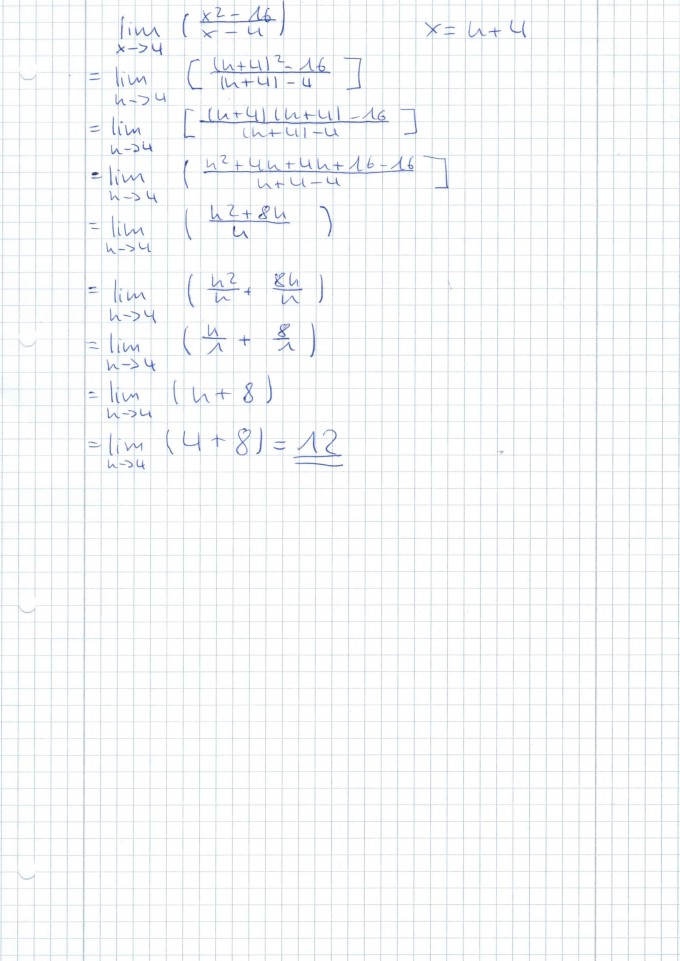 lim x->4 (x² - 16 / x - 4) x = h + 4
= lim h->4 [(h+4)² - 16 / (h+4) - 4]
= lim h->4 [(h+4)(h+4) - 16 / (h+4) - 4]
= lim h->4 (h² + 4h + 4h + 16 - 16 / h + 4 - 4]
= lim h->4 (h² + 8h / h)
= lim h->4 (h²/h + 8h/h)
= lim h->4 (h/1 + 8/1)
= lim h->4 (h + 8)
= lim h->4 (4 + 8) = 12